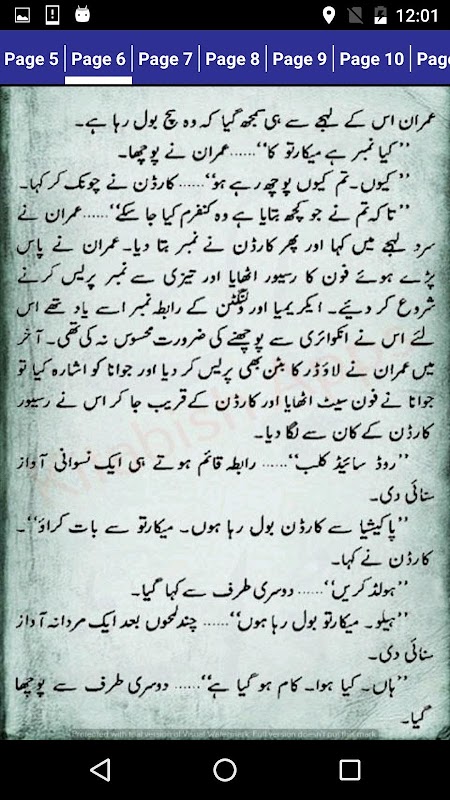 12:01
Page 5 Page 6 Page 7 Page 8 Page 9 Page 10 Page
عمران اس کے لہجے سے ہی سمجھ گیا کہ وہ سچ بول رہا ہے۔
’’کیا نمبر ہے میکارتو کا‘‘……عمران نے پوچھا۔
’’کیوں۔ تم کیوں پوچھ رہے ہو‘‘…… کارڈن نے چونک کر کہا۔
’’تاکہ تم نے جو کچھ بتایا ہے وہ کنفرم کیا جا سکے‘‘……عمران نے
سرد لہجے میں کہا اور پھر کارڈن نے نمبر بتا دیا۔ عمران نے پاس
پڑے ہوئے فون کا رسیور اٹھایا اور تیزی سے نمبر پریس کرنے
شروع کر دیئے۔ ایکریمیا اور ولنگٹن کے رابطہ نمبر اسے یاد تھے اس
لئے اس نے انکوائری سے پوچھنے کی ضرورت محسوس نہ کی تھی۔ آخر
میں عمران نے لاؤڈر کا بٹن بھی پریس کر دیا اور جوانا کو اشارہ کیا تو
جوانا نے فون سیٹ اٹھایا اور کارڈن کے قریب جا کر اس نے رسیور
کارڈن کے کان سے لگا دیا۔
’’روڈ سائیڈ کلب‘‘…… رابطہ قائم ہوتے ہی ایک نسوانی آواز
سنائی دی۔
’’پاکیشیا سے کارڈن بول رہا ہوں۔ میکارتو سے بات کراؤ‘‘۔
کارڈن نے کہا۔
’’ہولڈ کریں‘‘…… دوسری طرف سے کہا گیا۔
’’ہیلو۔ میکارتو بول رہا ہوں‘‘…… چند لمحوں بعد ایک مردانہ آواز
سنائی دی۔
’’ہاں۔ کیا ہوا۔ کام ہو گیا ہے‘‘…… دوسری طرف سے پوچھا
گیا۔
Protected with trial version of Visual Watermark. Full version doesn't put this mark.